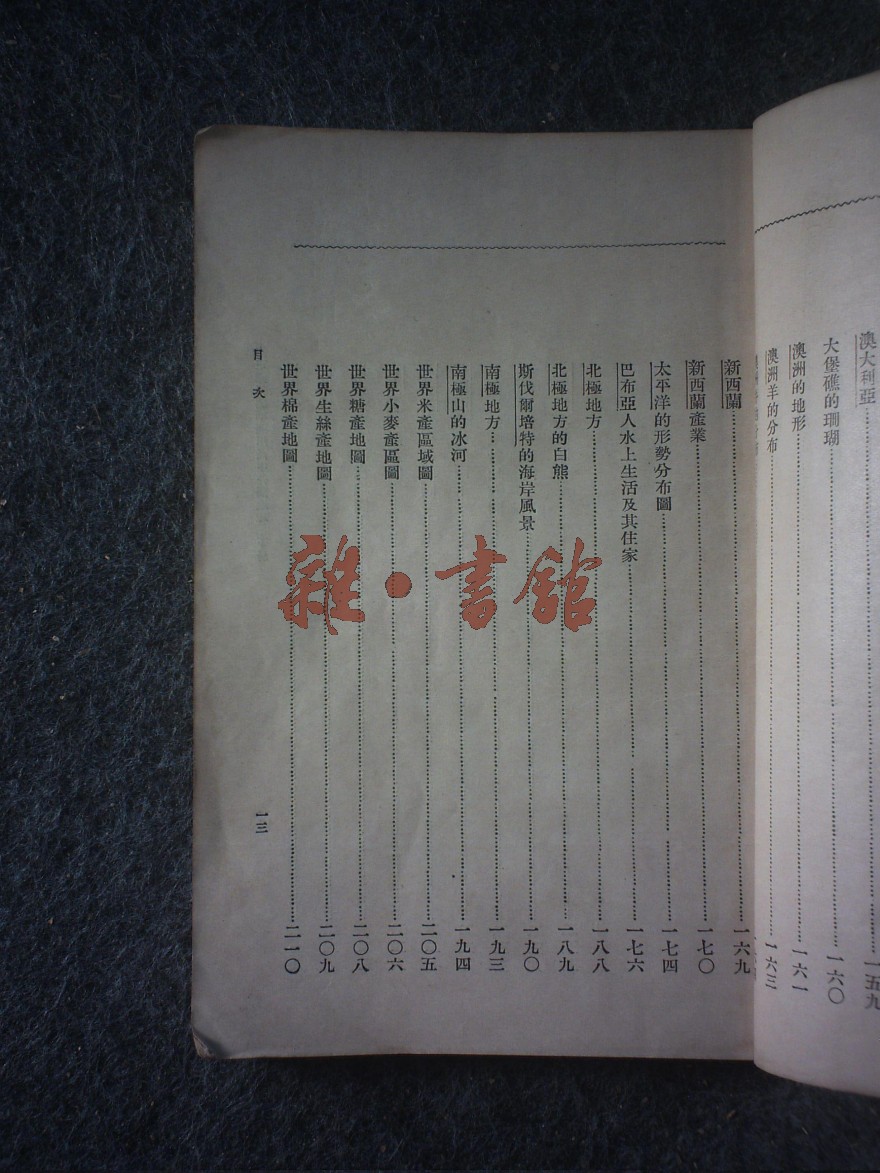 澳大利亞……一五九
大堡礁的珊瑚……一六〇
澳洲的地形……一六一
澳洲羊的分布……一六三
新西蘭……一六九
新西蘭產業……一七〇
太平洋的形勢分布圖……一七四
巴布亞人水上生活及其住家……一七六
北極地方……一八八
北極地方的白熊……一八九
斯伐爾培特的海岸風景……一九〇
南極地方……一九三
南極山的冰河……一九四
世界米產區域圖……二〇五
世界小麥產區圖……二〇六
世界糖產地圖……二〇八
世界生絲產地圖……二〇九
世界棉產地圖……二一〇
目次
一三
雜·書館